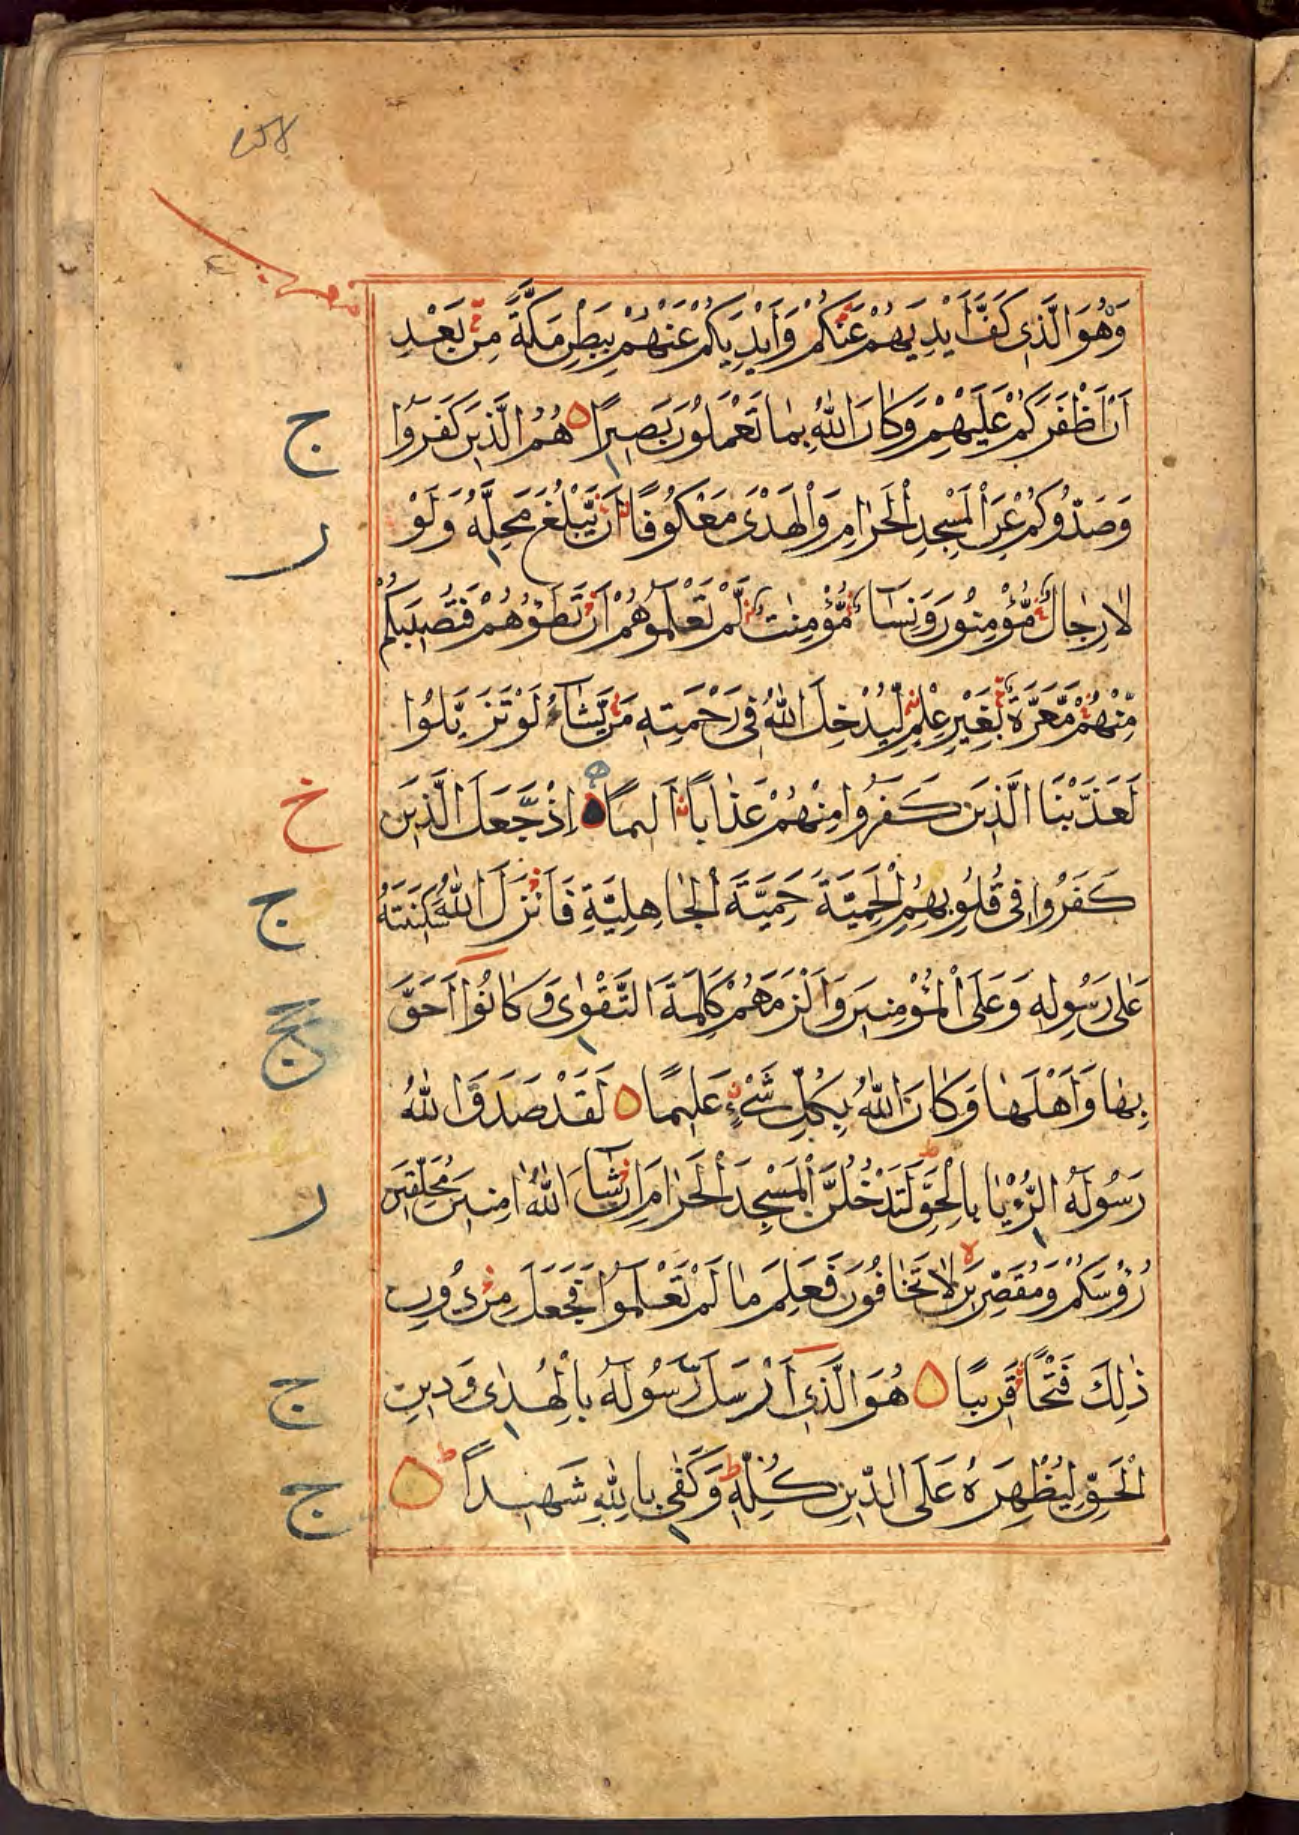 وَهُوَ الَّذِي كَفَّ أَيْدِيَهُمْ عَنْكُمْ وَأَيْدِيَكُمْ عَنْهُمْ بِبَطْنِ مَكَّةَ مِنْ بَعْدِ
أَنْ أَظْفَرَكُمْ عَلَيْهِمْ وَكَانَ اللّٰهُ بِمَا تَعْمَلُونَ بَصِيرًا هُمُ الَّذِينَ كَفَرُوا
ج
وَصَدُّوكُمْ عَنِ الْمَسْجِدِ الْحَرَامِ وَالْهَدْيَ مَعْكُوفًا أَنْ يَّبْلُغَ مَحِلَّهُ وَلَوْ
ر
لَا رِجَالٌ مُّؤْمِنُونَ وَنِسَاءٌ مُّؤْمِنٰتٌ لَّمْ تَعْلَمُوهُمْ أَنْ تَطَئُوهُمْ فَتُصِيبَكُمْ
مِّنْهُمْ مَّعَرَّةٌ بِغَيْرِ عِلْمٍ لِّيُدْخِلَ اللّٰهُ فِي رَحْمَتِهِ مَنْ يَّشَاءُ لَوْ تَزَيَّلُوا
لَعَذَّبْنَا الَّذِينَ كَفَرُوا مِنْهُمْ عَذَابًا أَلِيمًا إِذْ جَعَلَ الَّذِينَ
خ
كَفَرُوا فِي قُلُوبِهِمُ الْحَمِيَّةَ حَمِيَّةَ الْجَاهِلِيَّةِ فَأَنْزَلَ اللّٰهُ سَكِينَتَهُ
ج
عَلَى رَسُولِهِ وَعَلَى الْمُؤْمِنِينَ وَأَلْزَمَهُمْ كَلِمَةَ التَّقْوٰى وَكَانُوا أَحَقَّ
بِهَا وَأَهْلَهَا وَكَانَ اللّٰهُ بِكُلِّ شَيْءٍ عَلِيمًا لَقَدْ صَدَقَ اللّٰهُ
رَسُولَهُ الرُّءْيَا بِالْحَقِّ لَتَدْخُلُنَّ الْمَسْجِدَ الْحَرَامَ إِنْ شَاءَ اللّٰهُ اٰمِنِينَ مُحَلِّقِينَ
ر
رُؤُسَكُمْ وَمُقَصِّرِينَ لَا تَخَافُونَ فَعَلِمَ مَا لَمْ تَعْلَمُوا فَجَعَلَ مِنْ دُونِ
ذٰلِكَ فَتْحًا قَرِيبًا هُوَ الَّذِي أَرْسَلَ رَسُولَهُ بِالْهُدٰى وَدِينِ
ج
الْحَقِّ لِيُظْهِرَهُ عَلَى الدِّينِ كُلِّهِ وَكَفٰى بِاللّٰهِ شَهِيدًا
ج